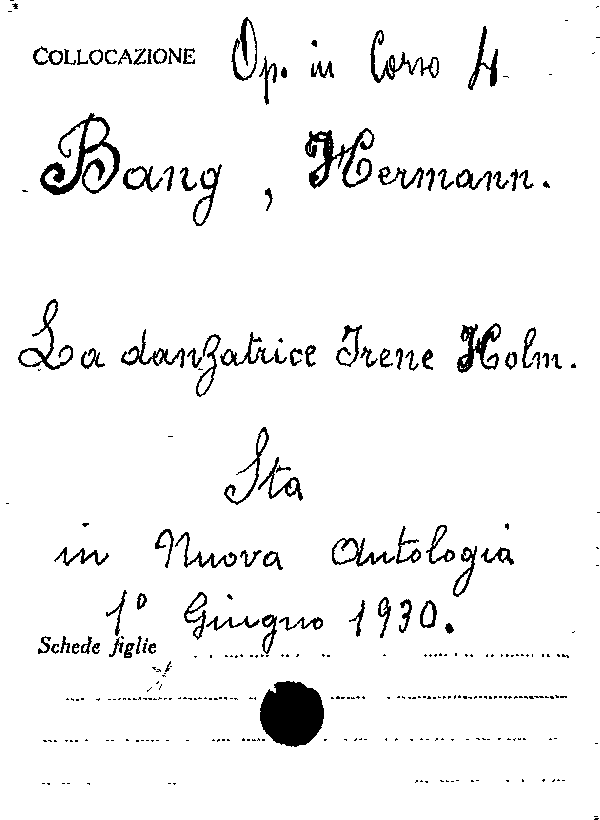 COLLOCAZIONE Op. in Corso 4
Bang, Hermann.
La danzatrice Irene Holm.
Sta
in Nuova Antologia
1° Giugno 1930.
Schede figlie